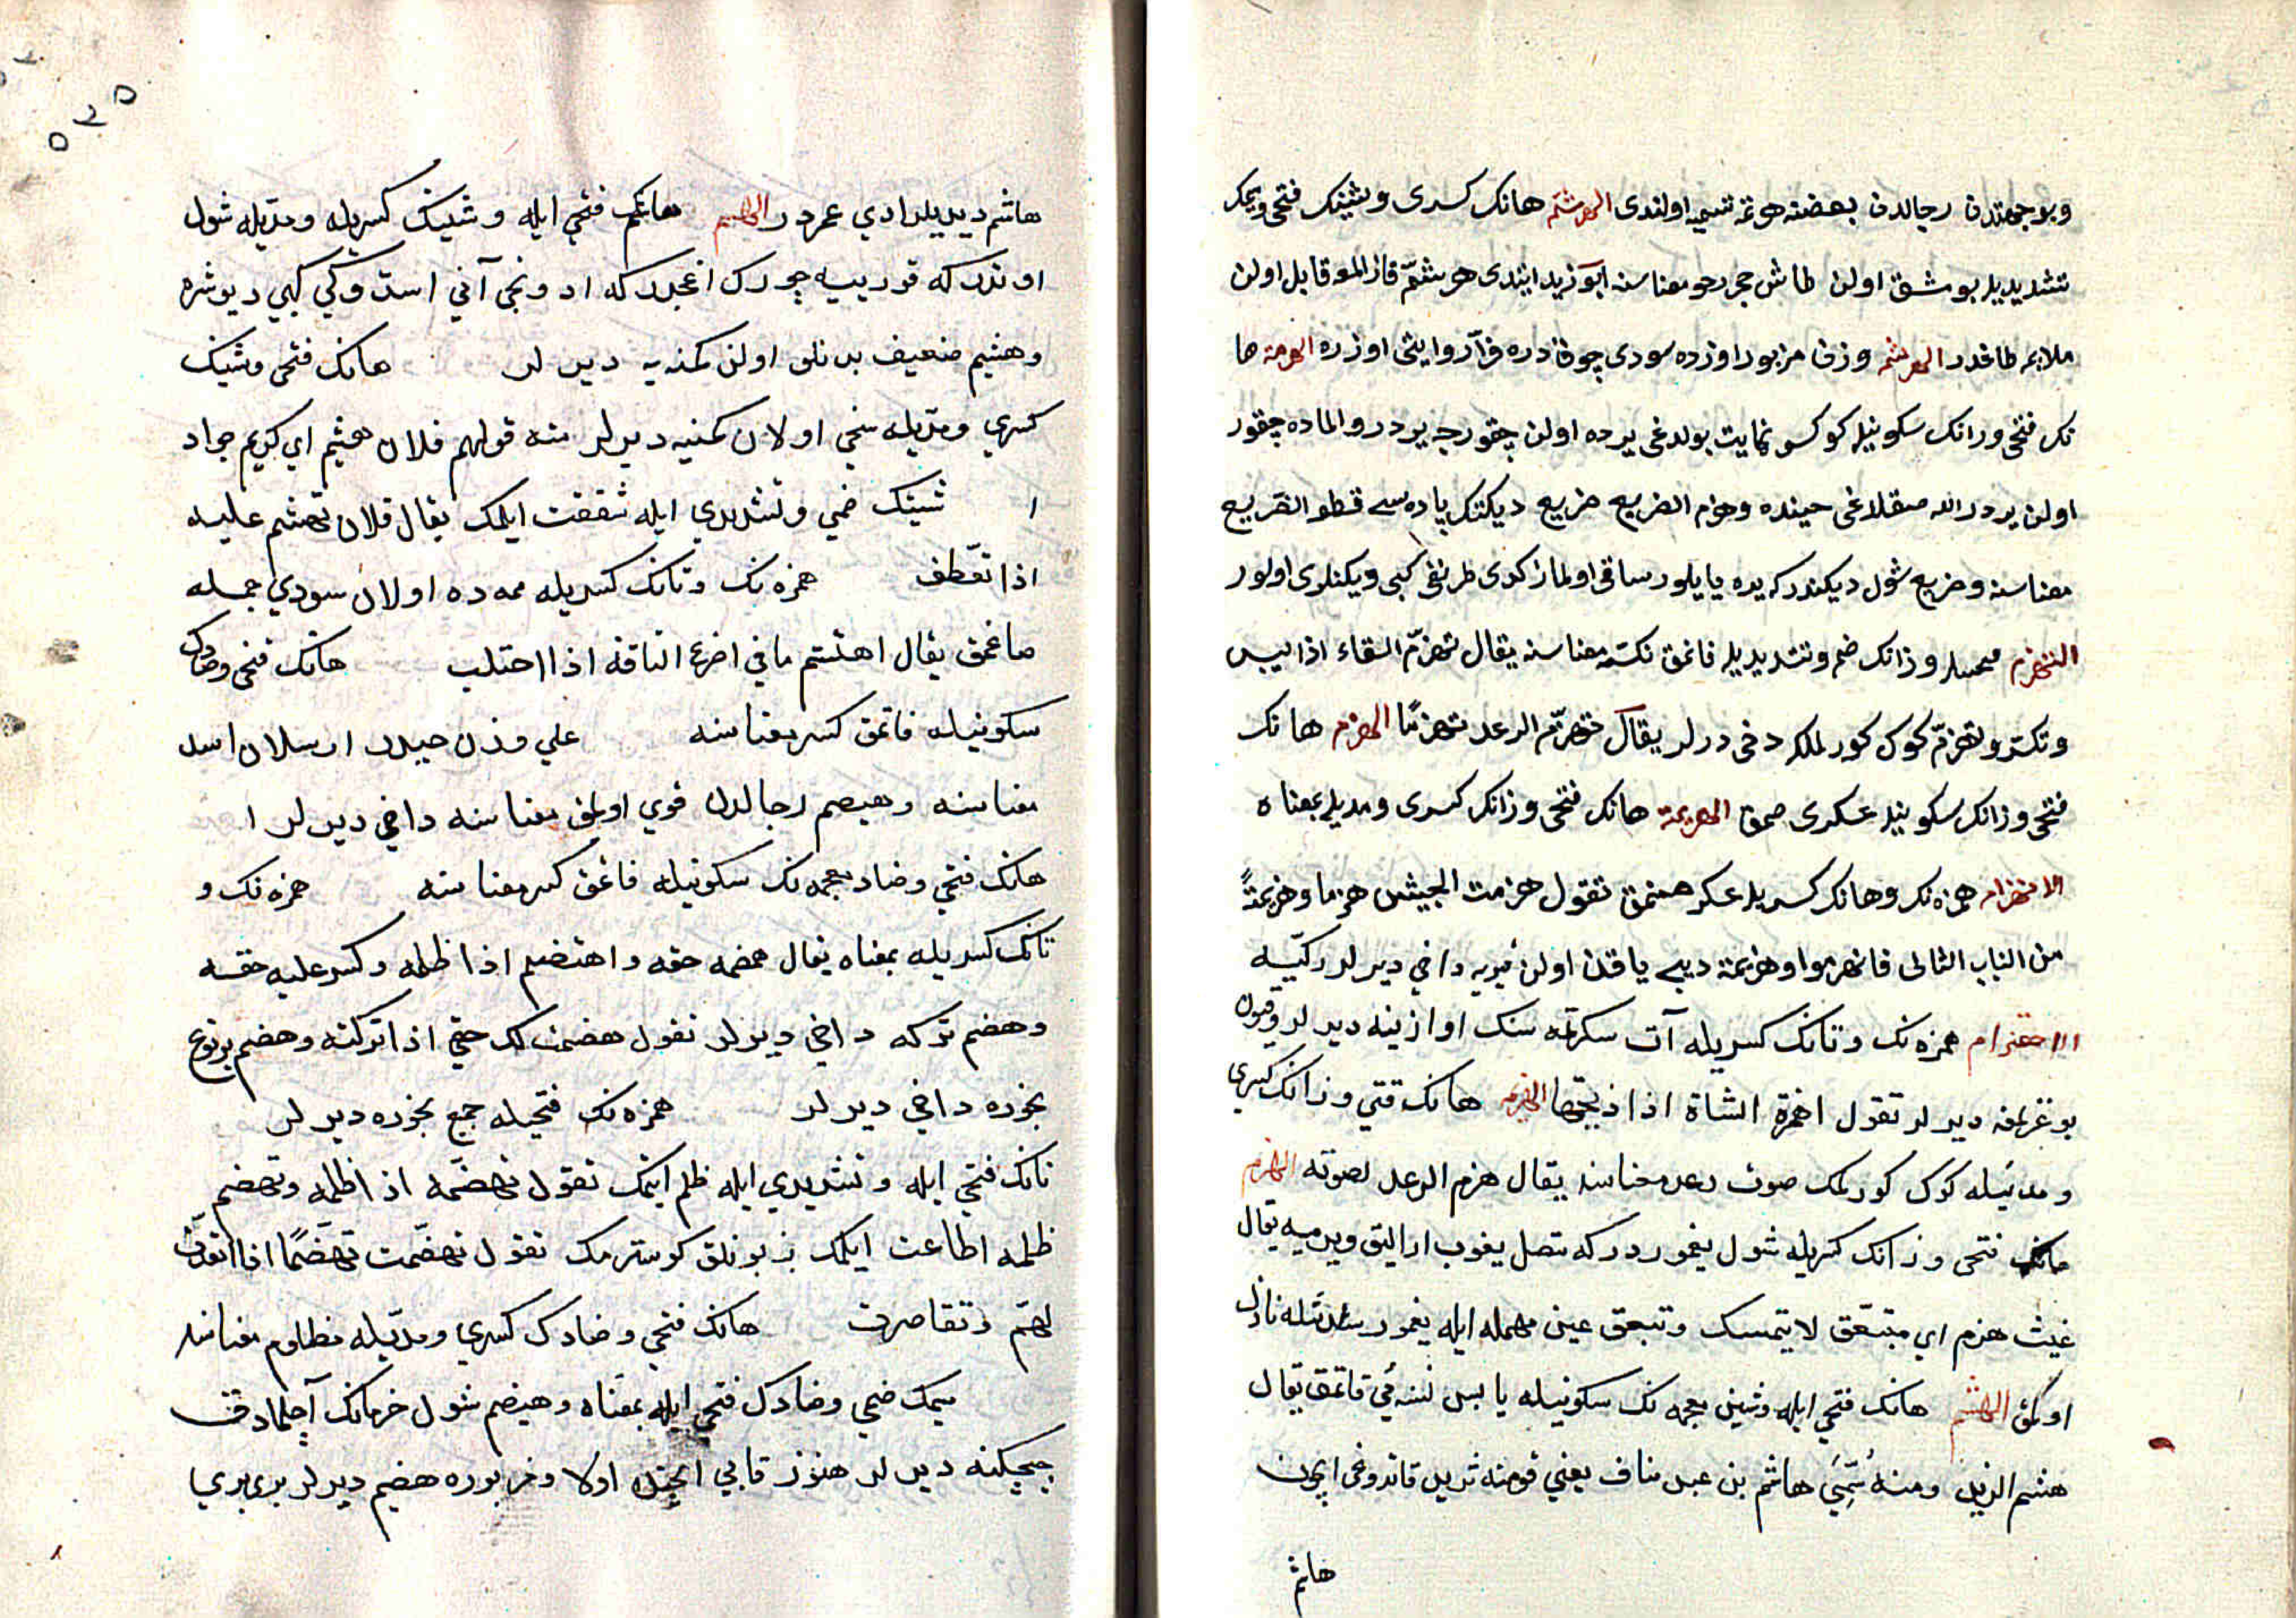 وبوجهتدن رجالدن بعضنه هرثمه تسميه اولندى الهرشم هانك كسرى وشينك فتحى وميمك
تشديديله يومشق اولن طاش حجر رخو معناسنه ابو زيد ايتدى هرشمّ قازلمغه قابل اولن
ملايم طاغدر الهرشم وزن مزبور اوزره سودى چوق اولن قوينه ديرلر اوزره الهزمة ها
نك فتحى ورانك سكونيله كوكسو نهايت بولدغى يرده اولن چقورجه يردر والماده چقور
اولن يردر الله صقلاغى حينده وهزم الضريع ضريع ديكننك ياده سى قطو الضريع
معناسنه وضريع شول ديكندركه يره يايلور ساقى اولماز كدى طرنغى كبى ديكنلرى اولور
التهزم وزانك ضم وتشديديله قاغق تكسّر معناسنه يقال تهزّم السقاء اذا يبس
وتكسّر وتهزّم كوك كورلمكه دخى ديرلر يقال تهزّم الرعد تهزّمًا الهزم هانك
فتحى وزانك سكونيله عسكرى صمق الهزيمة هانك فتحى وزانك كسرى ومديله بمعناه
الانهزام همزه نك وهانك كسريله عسكر صنمق تقول هزمت الجيش هزما وهزيمةً
من الباب الثانى فانهزموا وهزيمة ديبى ياقن اولن قويويه داخي ديرلر ركيّه
الاهتزام همزه نك وتانك كسريله آت سكرتمه سنك اوازينه ديرلر وقيون
بوغزلمغه ديرلر تقول اهتزمة الشاة اذا ذبحتها الهزيم هانك فتحي وزانك كسري
ومديله كوك كورلمك صوت رعد معناسنه يقال هزم الرعد لصوته الهزم
هانك فتحى وزانك كسريله شول يغموردركه متصل يغوب اراليق ويرميه يقال
غيث هزم اي متبعّق لا يتمسك وتبعق عين مهمله ايله يغمور شدتله نازل
اولمق الهشم هانك فتحي ايله وشين معجمه نك سكونيله يابس نسنه ئي قاتمق يقال
هشم الثريد ومنه سُمِّيَ هاشم بن عبد مناف يعني قومنه ثريد قاتدوغى ايچون
هاشم
هاشم ديديلر ادي عمرودر الهشيم هانك فتحي ايله وشينك كسريله ومدّيله شول
اوتدركه قورييه چورك اغجدركه اودونجي آني استدوكي كبي ديوشره
وهشيم ضعيف بدنلو اولن كمنه يه ديرلر هانك فتحى وشينك
كسري ومدّيله سخي اولان كمنيه ديرلر منه قولهم فلان هشيم اي كريم جواد
ا شينك ضمي وتشديدي ايله شفقت ايلمك يقال فلان تهشم عليه
اذا تعّطف همزه نك وتانك كسريله ممه ده اولان سودي جمله
صاغمق يقال اهتشم ما في اضرع الناقه اذا احتلب هانك فتحى وصادك
سكونيله قاتمق كسر معناسنه علي وزن حيدر ارسلان اسد
معناسنه وهيصم رجالدن قوي اولمق معناسنه داخي ديرلر ا
هانك فتحي وضاد معجمه نك سكونيله قاغق كسر معناسنه همزه نك و
تانك كسريله بمعناه يقال هضمه حقه واهتضم اذا ظلمه وكسر عليه حقه
وهضم تركه داخي ديرلر تقول هضمت لك حقي اذا تركته وهضم بر نوع
بخوره داخي ديرلر همزه نك فتحيله جمع بخوره ديرلر
تانك فتحي ايله وتشديدي ايله ظلم ايتمك تقول تهضّمه اذا ظلمه وتهضم
ظلمه اطاعت ايلمك زبونلق كوسترمك تقول تهضّمت تهضّمًا اذا انقدت
لهم وتقاصرت هانك فتحي وضادك كسري ومدّيله مظلوم معناسنه
ميمك ضمي وضادك فتحي ايله بمعناه وهيضم شول خرمانك آچلمادق
چيچكنه ديرلر هنوز قابي ايچنده اولا ومزبوره هضيم ديرلر بري بري